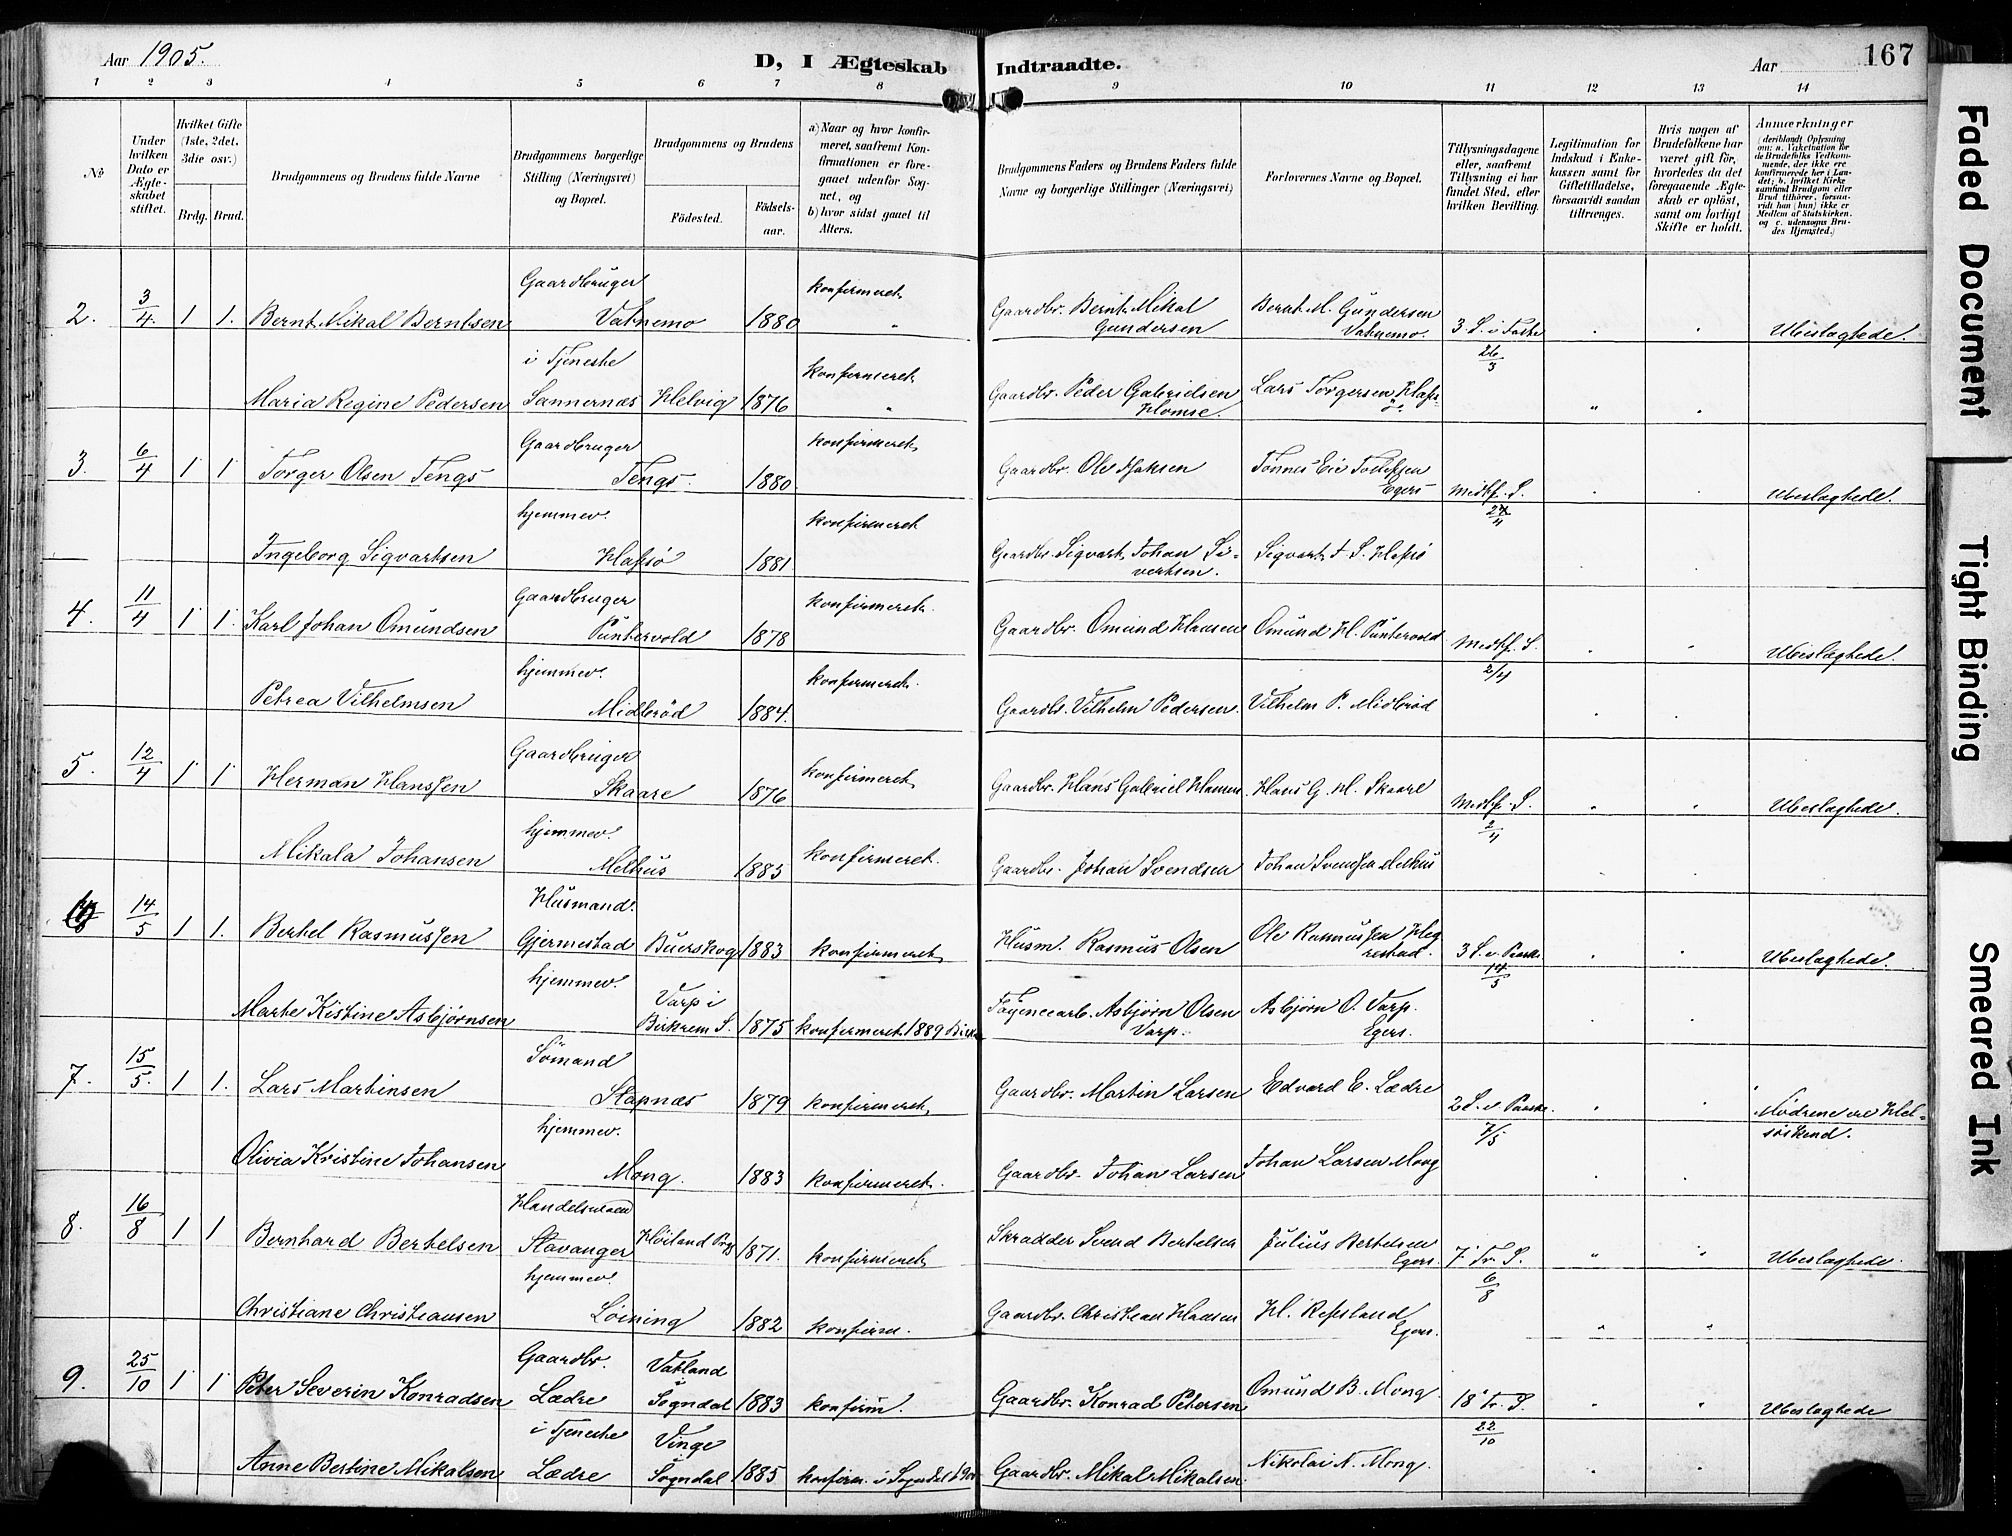 Aar 1905.
D, I Ægteskab Indtraadte.
Aar
167
1 2 3 4 5 6 7 8 9 10 11 12 13 14
No
Under hvilken Dato er Ægteskabet stiftet.
Hvilket Gifte (1ste, 2det, 3die osv.)
Brdg. Brud.
Brudgommens og Brudens fulde Navne
Brudgommens borgerlige Stilling (Næringsvei) og Bopæl.
Brudgommens og Brudens
Fødested.
Fødselsaar.
a) Naar og hvor konfirmeret, saafremt Konfirmationen er foregaaet udenfor Sognet, og
b) hvor sidst gaaet til Alters.
Brudgommens Faders og Brudens Faders fulde Navne og borgerlige Stillinger (Næringsvei)
Forlovernes Navne og Bopæl.
Tillysningsdagene eller, saafremt Tillysning ei har fundet Sted, efter hvilken Bevilling.
Legitimation for Indskud i Enkekassen samt for Giftetilladelse, forsaavidt saadan tiltrænges.
Hvis nogen af Brudefolkene har været gift før, hvorledes da det foregaaende Ægteskab er opløst, samt om lovligt Skifte er holdt.
Anmærkninger (deriblandt Oplysning om: a. Vakcination for de Brudefolks Vedkommende, der ikke ere konfirmerede her i Landet; b. hvilket Kirkesamfund Brudgom eller Brud tilhører, forsaavidt han (hun) ikke er Medlem af Statskirken, og c. udensogns Brudes Hjemsted.)
2. 3/4 1 1. Bernt Mikal Berntsen Gaardbruger Vatnemo 1880 konfirmeret " Gaardbr. Bernt Mikal Gundersen Bernt M. Gundersen Vatnemo. 3. S. i Faste 26/3 Ubeslægtede.
Maria Regine Pedersen i Tjeneste Sannernæs Helvig 1876 konfirmeret " Gaardbr. Peder Gabrielsen Lars Torgersen
3. 6/4 1 1 Torger Olsen Tengs Gaardbruger Tengs. 1880 konfirmeret Gaardbr. Ole Egers Midtf. S. Ubeslægtede.
Ingeborg Sigvartsen hjemmev. Hafsø 1881 konfirmeret Gaardbr. Sigvart Johan Sivertsen. Sigvart J. S. Hafsø
4. 11/4 1 1. Karl Johan Omundsen Gaardbruger Puntervold 1878 konfirmeret. Gaardbr. Omund Hansen Omund H. Puntervold Midtf. S. 2/4 Ubeslægtede.
Petrea Vilhelmsen hjemmev. Midbrød 1884. konfirmeret. Gaardbr. Vilhelm Pedersen. Vilhelm P. Midbrød
5. 12/4 1 1 Herman Hanssen Gaardbruger Skaare 1876 konfirmeret Gaardbr. Hans Gabriel Hansen Hans G. H. Skaare Midtf. S. 2/4 Ubeslægtede.
Mikala Johansen hjemmev. Melhus 1883 konfirmeret. Gaardbr. Johan Svendsen Johan Svendsen Melhus
6 14/5 1 1. Berhel Rasmussen Husmand. Gjermestad Buerskog 1883 konfirmeret Husm. Rasmus Olsen Ole Rasmussen Hegrestad. 3 S. e. Paaske 14/5 Ubeslægtede.
Marte Kistine Asbjørnsen hjemmev. Varp i Birkrem S. 1875 konfirmeret 1889 Fayencearb. Asbjørn Olsen Varp. Asbjørn O. Varp. Egers.
7. 15/5. 1 1. Lars Martinsen Sømand Stapnæs 1879 konfirmeret Gaardbr. Martin Larsen Edvard E. Lædre 2 S. e. Paaske. 7/5 Mødrene ere Helsøskend.
Olivia Kristine Johansen hjemmev. Mong. 1883 konfirmeret. Gaardbr. Johan Larsen Johan Larsen Mong
8. 16/8 1 1 Bernhard Berhelsen Handelsmand Stavanger Høiland Prgj 1871. konfirmeret Skrædder Svend Berhelsen Julius Berhelsen Egers. 7. Tr. S. 6/8 Ubeslægtede.
Christiane Christiansen hjemmev. Løining 1882 konfirm. Gaardbr. Christian Hansen H. Refsland Egers.
9. 25/10 1 1 Peter Severin Konradsen Gaardbr. Lædre Vatland Sogndal 1883 konfirm. Gaardbr. Konrad Petersen Omund B. Mong 18 Tr. S. 22/10 Ubeslægtede
Anne Bertine Mikalsen i Tjeneste Lædre Vinge Sogndal 1885 konfirm. i Sogndal Gaardbr. Mikal Mikalsen Nikolai N. Mong.
Faded Document
Tight Binding
Smeared Ink